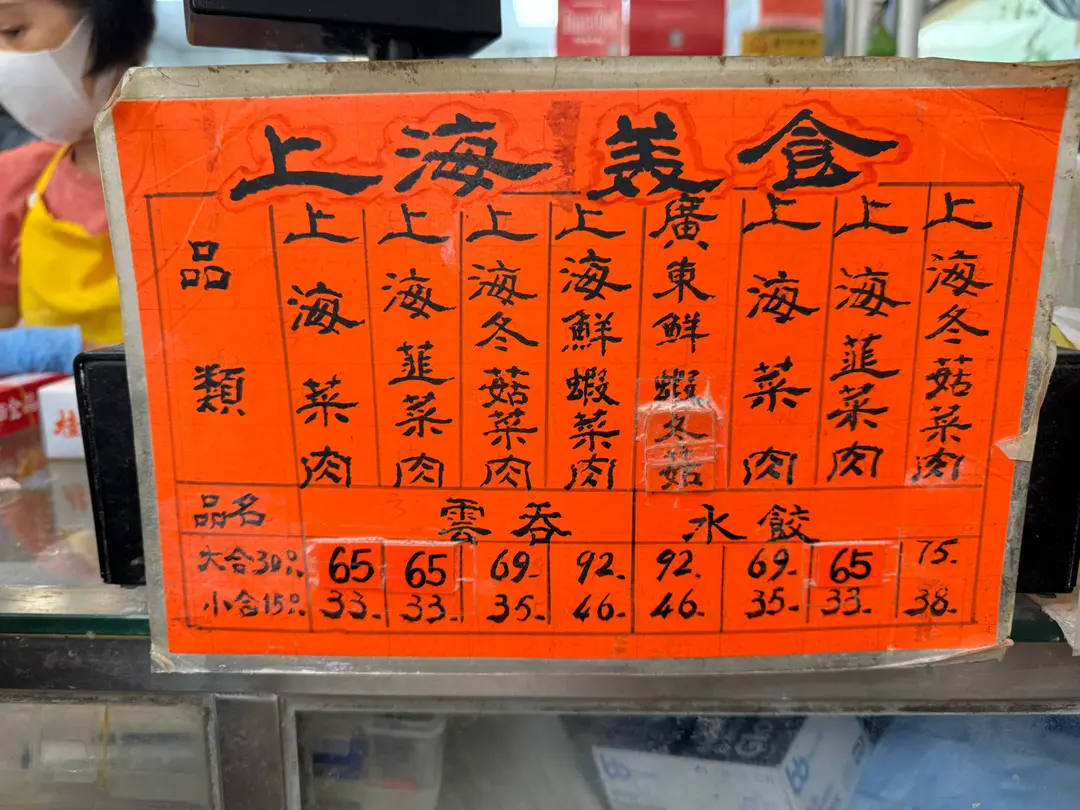 上海美食
品類
上海菜肉
上海韮菜肉
上海冬菇菜肉
上海鮮蝦菜肉
廣東鮮蝦冬菇
上海菜肉
上海韮菜肉
上海冬菇菜肉
品名 雲吞 水餃
大合30只 65 65 69. 92. 92. 69. 65 75.
小合15只 33. 33. 35. 46. 46. 35. 33. 38.